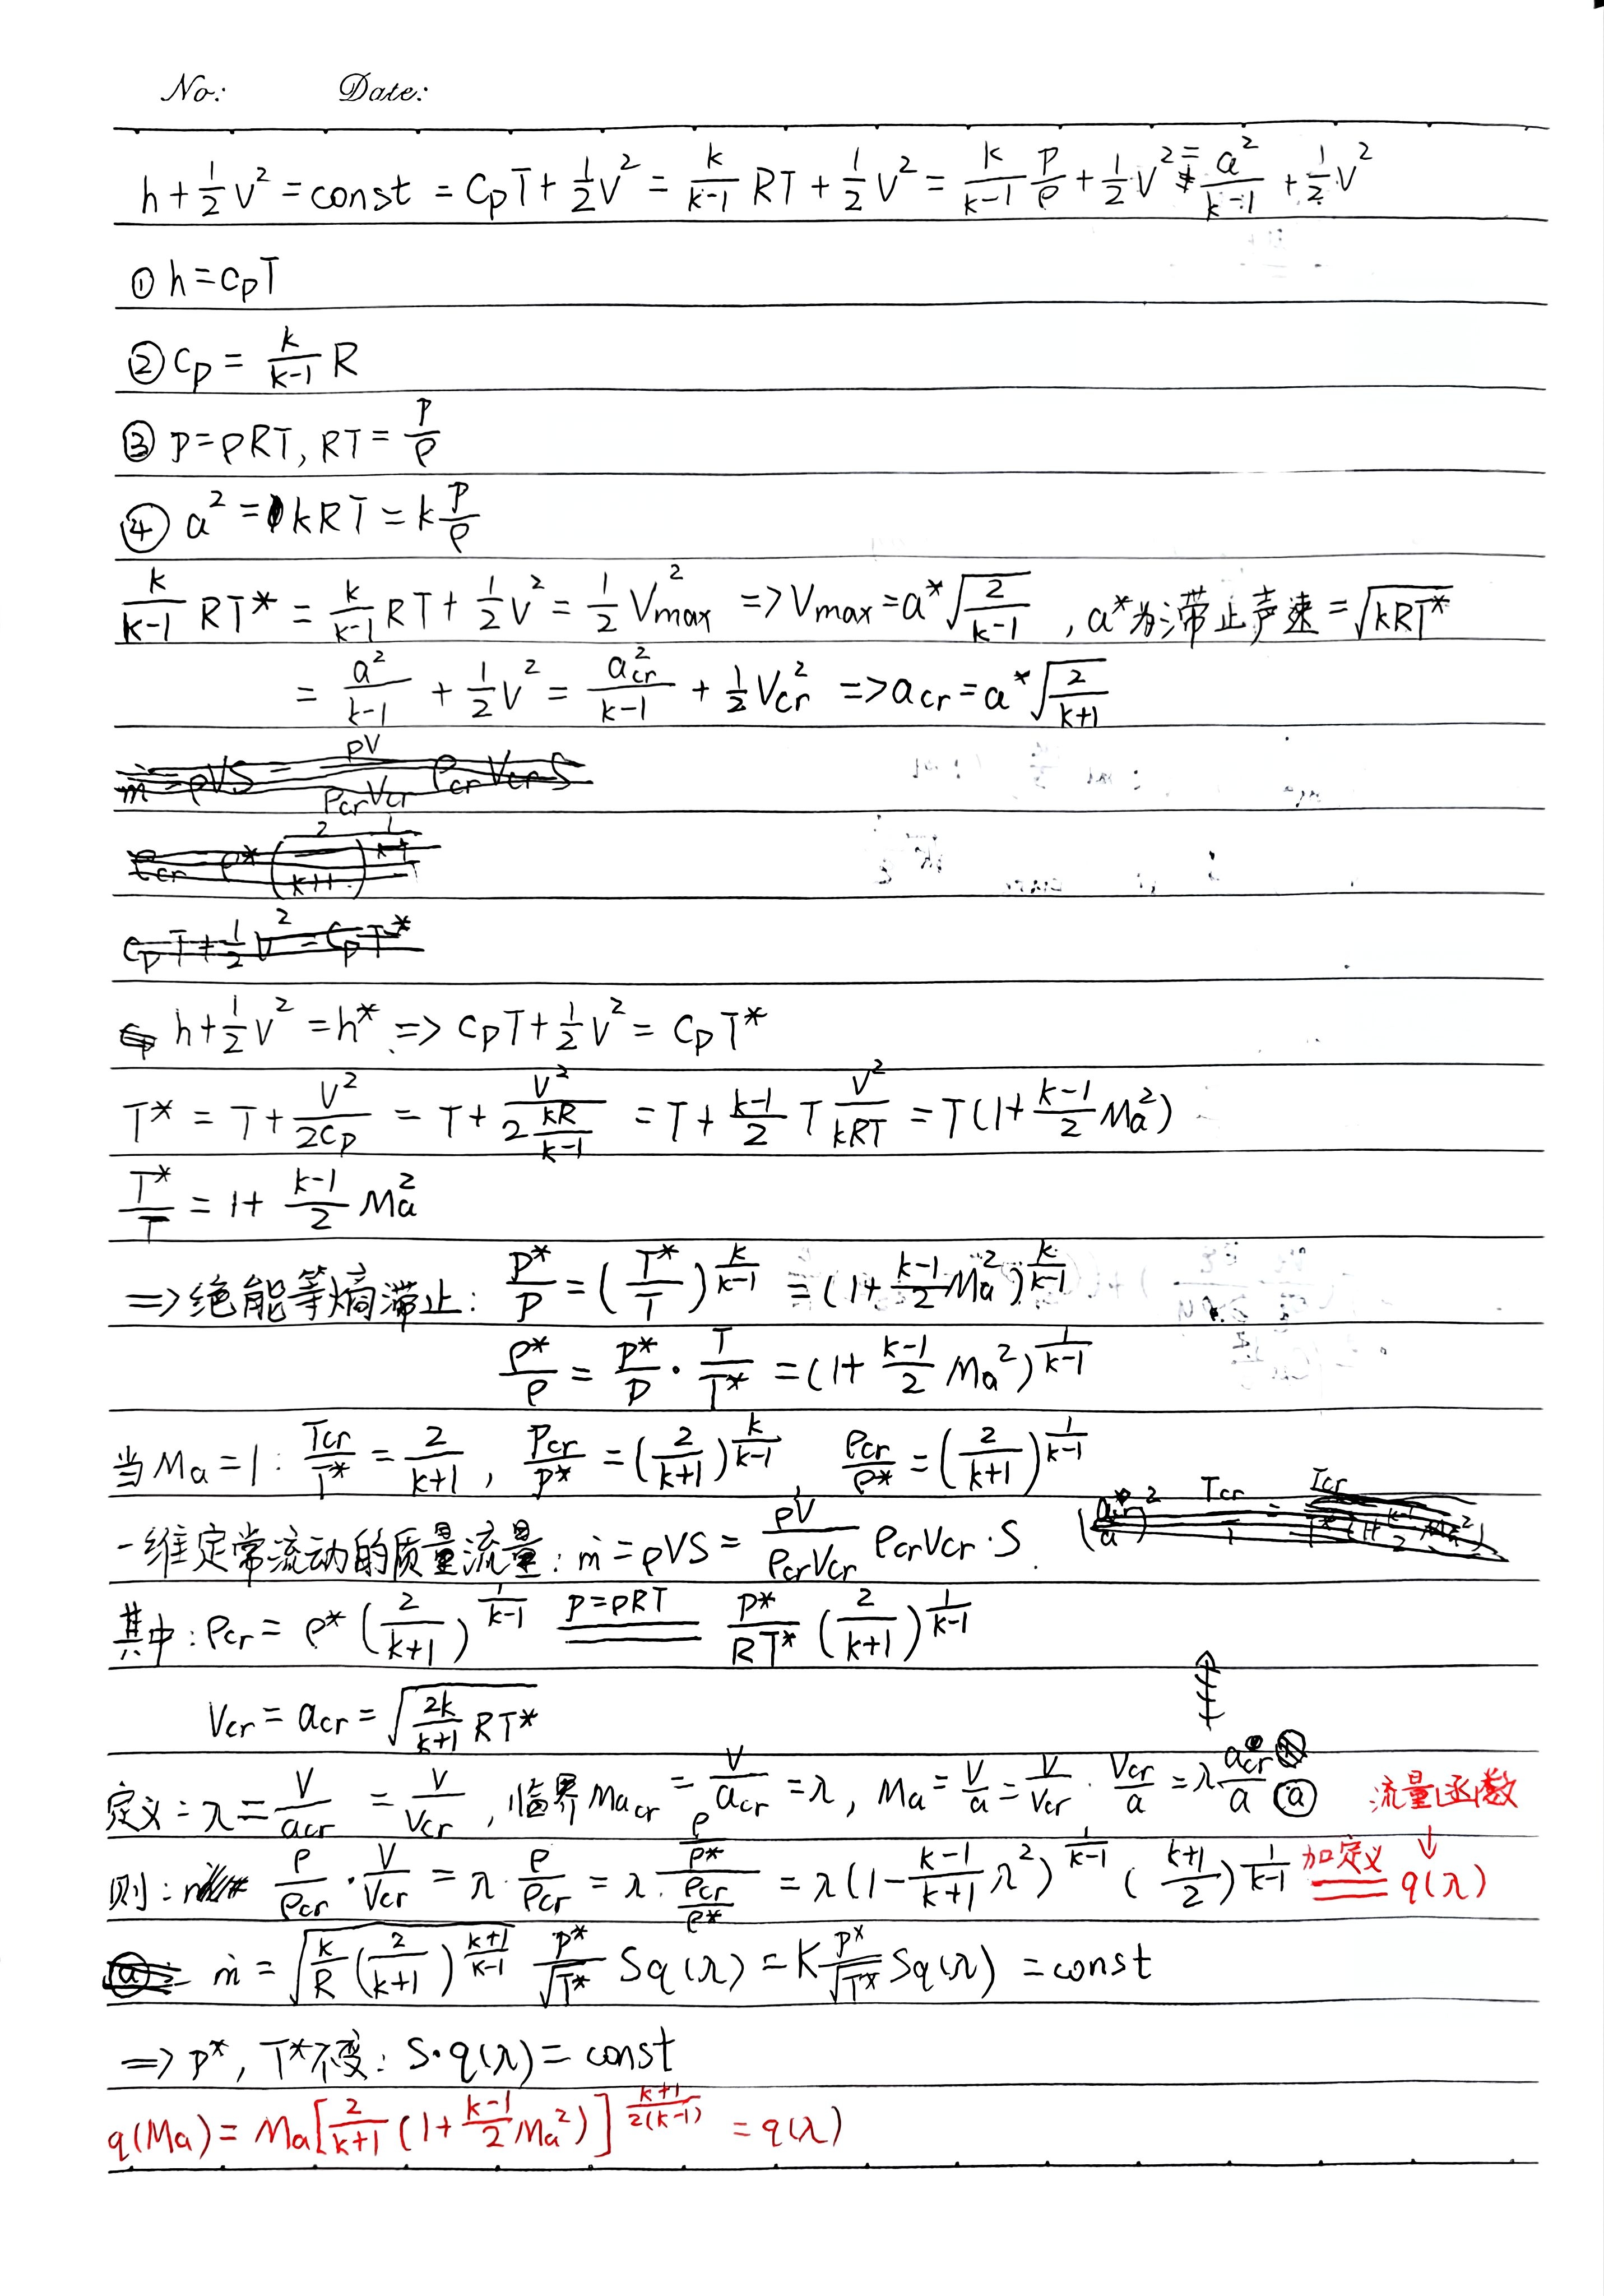 No: Date:
h + 1/2 V² = const = CpT + 1/2 V² = k/(k-1) RT + 1/2 V² = k/(k-1) P/ρ + 1/2 V² = a²/(k-1) + 1/2 V²
① h = CpT
② Cp = k/(k-1) R
③ P = ρRT, RT = P/ρ
④ a² = kRT = k P/ρ
k/(k-1) RT* = k/(k-1) RT + 1/2 V² = 1/2 Vmax² => Vmax = a*√(2/(k-1)) , a*为滞止声速 = √(kRT*)
= a²/(k-1) + 1/2 V² = acr²/(k-1) + 1/2 Vcr² => acr = a*√(2/(k+1))
ṁ = ρVS = ρV/(ρcrVcr) ρcrVcrS
ρcr ρ* (2/(k+1))^(1/(k-1))
CpT + 1/2 V² = CpT*
h + 1/2 V² = h* => CpT + 1/2 V² = CpT*
T* = T + V²/(2Cp) = T + V²/(2 kR/(k-1)) = T + (k-1)/2 T V²/(kRT) = T(1 + (k-1)/2 Ma²)
T*/T = 1 + (k-1)/2 Ma²
=> 绝能等熵滞止: P*/P = (T*/T)^(k/(k-1)) = (1 + (k-1)/2 Ma²)^(k/(k-1))
ρ*/ρ = P*/P · T/T* = (1 + (k-1)/2 Ma²)^(1/(k-1))
当Ma = 1: Tcr/T* = 2/(k+1), Pcr/P* = (2/(k+1))^(k/(k-1)), ρcr/ρ* = (2/(k+1))^(1/(k-1))
一维定常流动的质量流量: ṁ = ρVS = ρV/(ρcrVcr) ρcrVcr·S
其中: ρcr = ρ* (2/(k+1))^(1/(k-1)) P=ρRT = P*/(RT*) (2/(k+1))^(1/(k-1))
Vcr = acr = √(2k/(k+1) RT*)
定义: λ = V/acr = V/Vcr, 临界Macr = V/acr = λ, Ma = V/a = V/Vcr · Vcr/a = λ acr/a ⓐ 流量函数 ↓
则: ρ/ρcr · V/Vcr = λ · ρ/ρcr = λ · (ρ/ρ*)/(ρcr/ρ*) = λ(1 - (k-1)/(k+1) λ²)^(1/(k-1)) ((k+1)/2)^(1/(k-1)) 加定义 = q(λ)
ṁ = √(k/R (2/(k+1))^((k+1)/(k-1))) P*/√T* Sq(λ) = K P*/√T* Sq(λ) = const
=> P*, T*不变: S·q(λ) = const
q(Ma) = Ma[2/(k+1) (1 + (k-1)/2 Ma²)]^((k+1)/(2(k-1))) = q(λ)